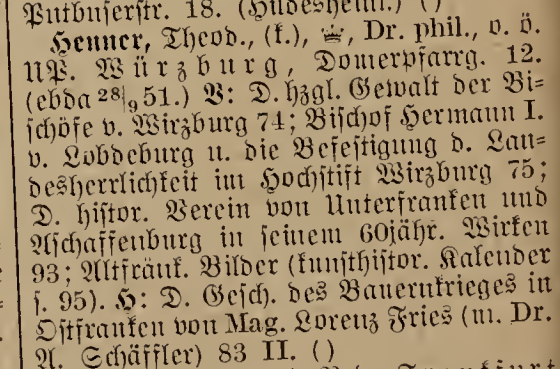 Putbuserstr. 18. (Hildesheim.) ()
Henner, Theod., (k.), Dr. phil., o. ö.
UP. Würzburg, Domerpfarrg. 12.
(ebda 28/9 51.) V: D. hzgl. Gewalt der Bi=
schöfe v. Wirzburg 74; Bischof Hermann I.
v. Lobdeburg u. die Befestigung d. Lan=
desherrlichkeit im Hochstift Wirzburg 75;
D. histor. Verein von Unterfranken und
Aschaffenburg in seinem 60jähr. Wirken
93; Altfränk. Bilder (kunsthistor. Kalender
s. 95). H: D. Gesch. des Bauernkrieges in
Ostfranken von Mag. Lorenz Fries (m. Dr.
A. Schäffler) 83 II. ()